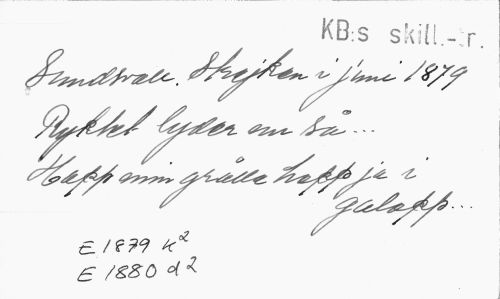 KB:s skill.-tr.
Sundsvall. Strejken i juni 1879
Ryktet lyder nu så...
Happ min grålle happ ja i
galopp...
E 1879 k²
E 1880 d²